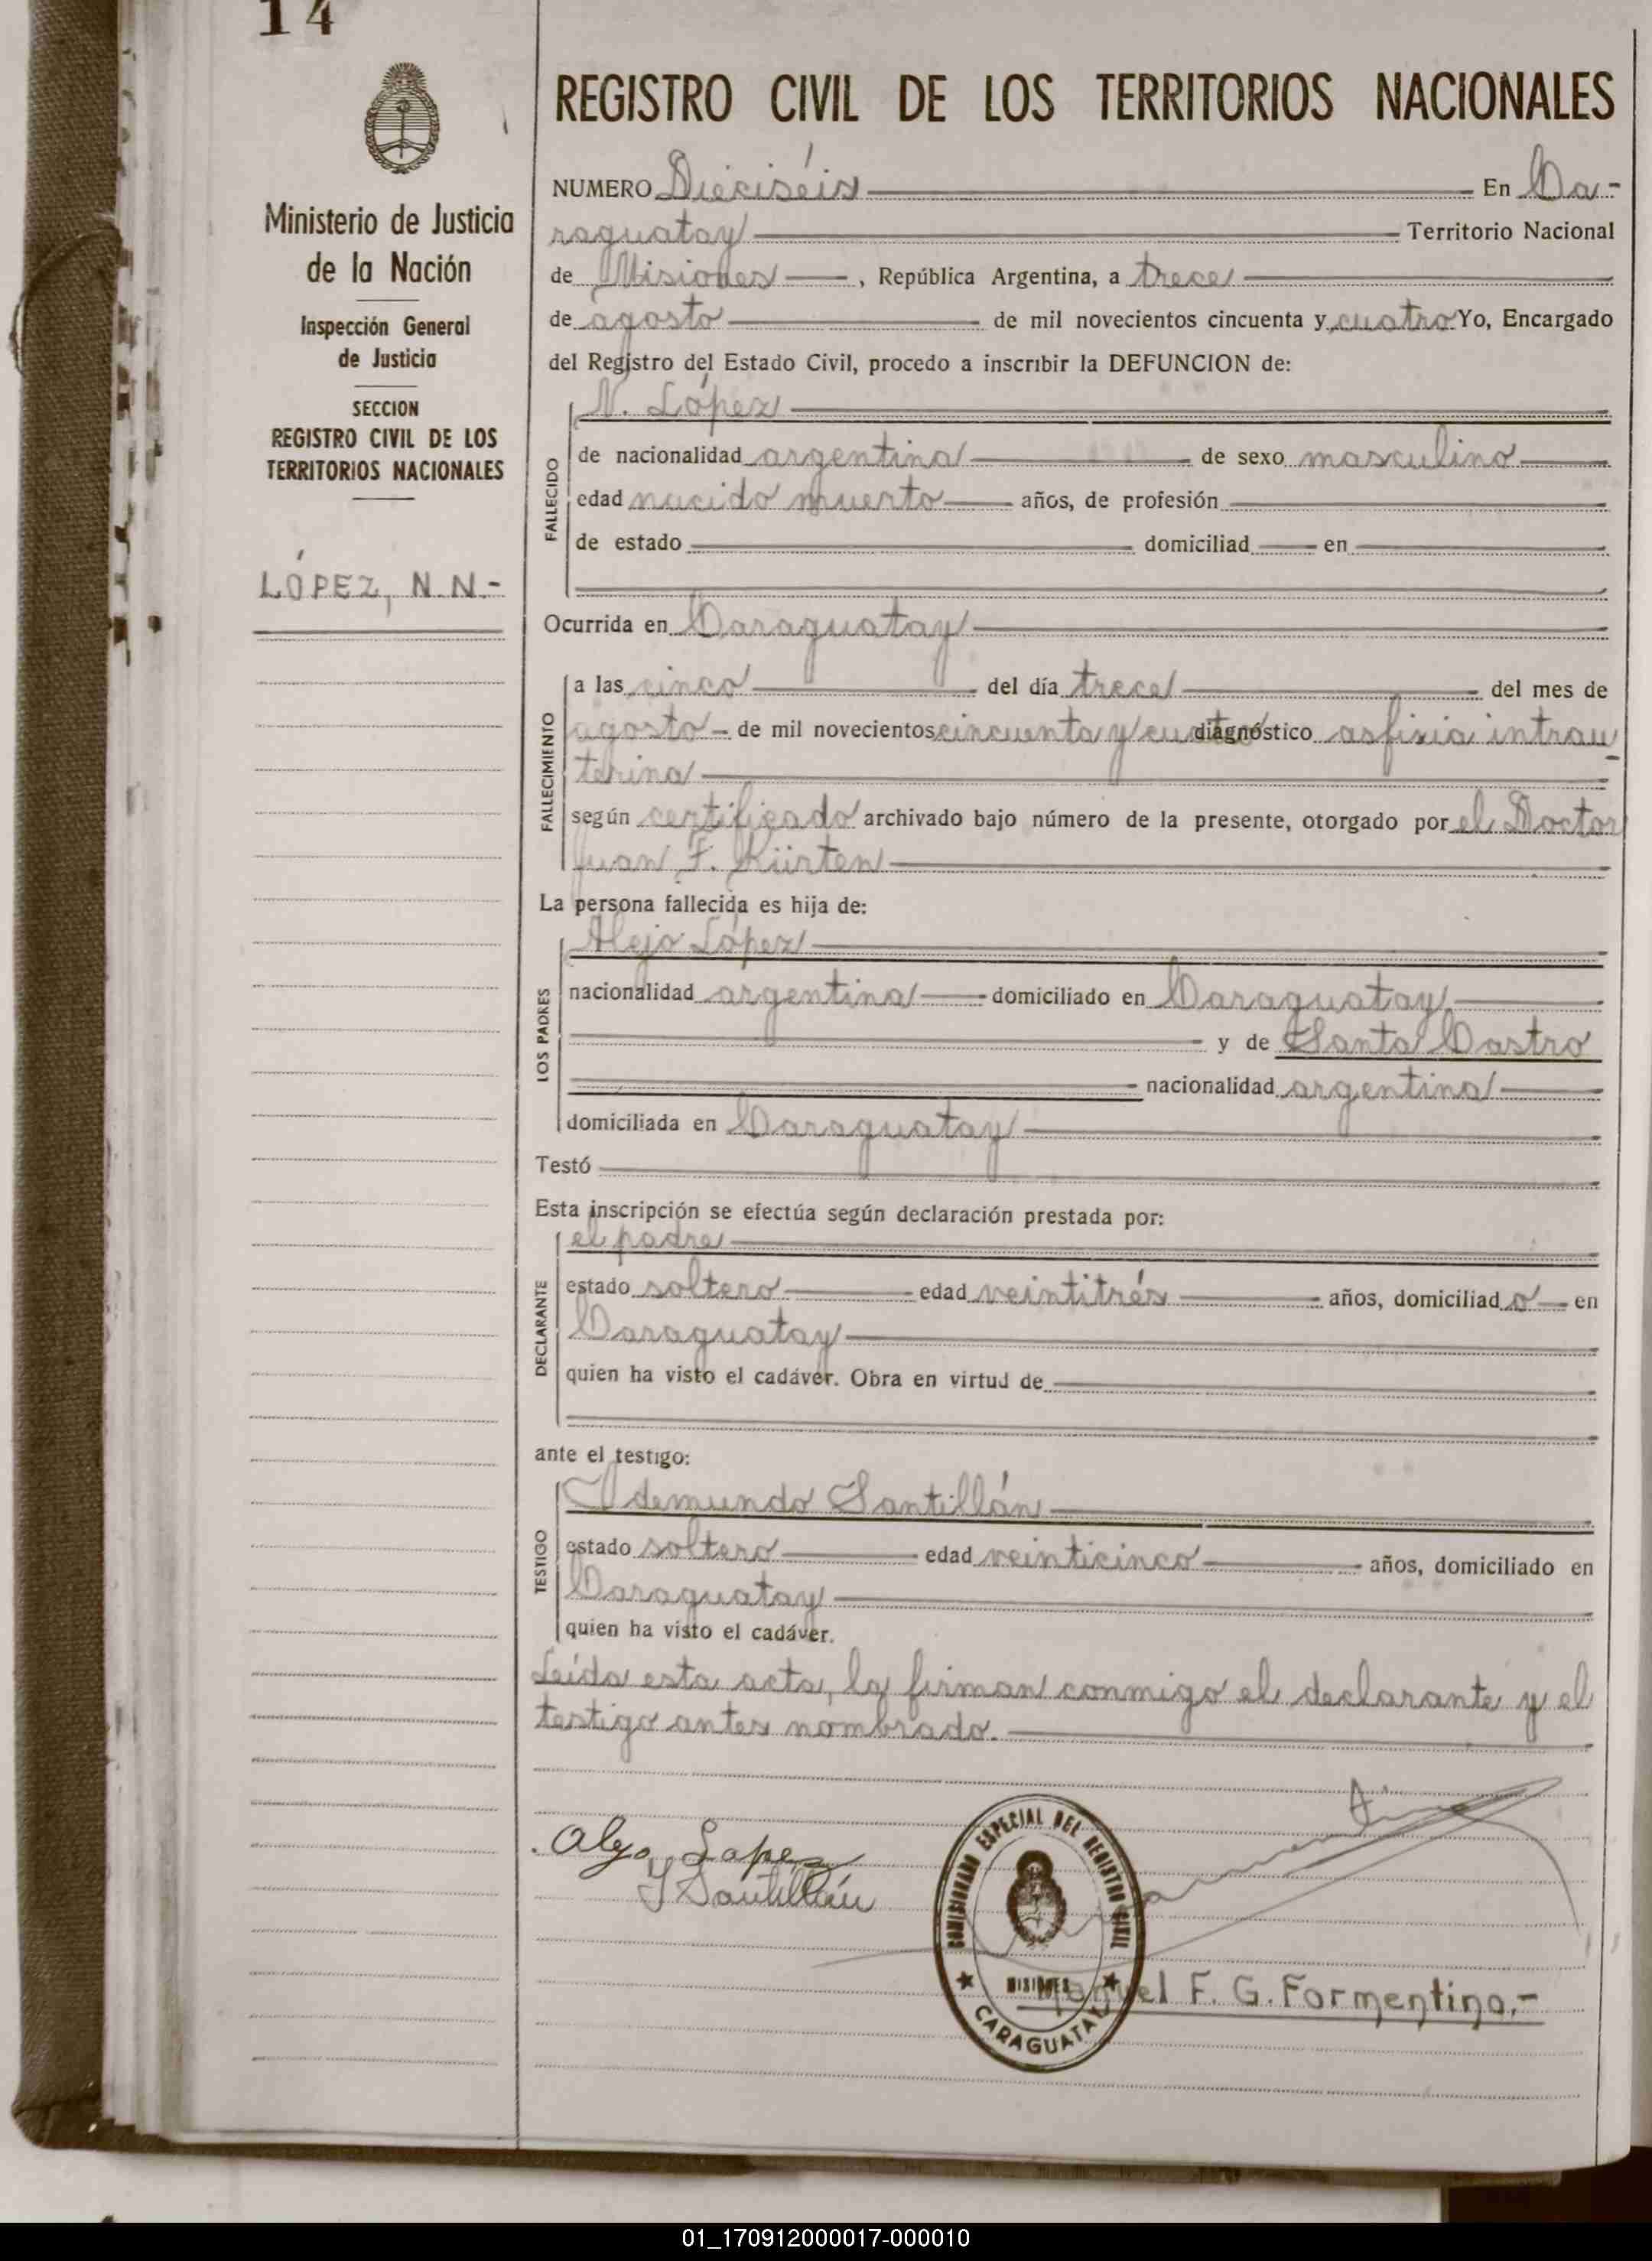 14
Ministerio de Justicia
de la Nación
Inspección General
de Justicia
SECCION
REGISTRO CIVIL DE LOS
TERRITORIOS NACIONALES
LÓPEZ, N. N.-
REGISTRO CIVIL DE LOS TERRITORIOS NACIONALES
NUMERO Dieciséis En Ca-
raguatay Territorio Nacional
de Misiones, República Argentina, a trece
de agosto de mil novecientos cincuenta y cuatro Yo, Encargado
del Registro del Estado Civil, procedo a inscribir la DEFUNCION de:
N. López
FALLECIDO
de nacionalidad argentina de sexo masculino
edad nacido muerto años, de profesión
de estado domiciliad en
Ocurrida en Caraguatay
FALLECIMIENTO
a las cinco del día trece del mes de
agosto - de mil novecientos cincuenta y cuatro diagnóstico asfixia intrau
terina
según certificado archivado bajo número de la presente, otorgado por el Doctor
Juan F. Kürten
La persona fallecida es hija de:
LOS PADRES
Alejo López
nacionalidad argentina domiciliado en Caraguatay
y de Santa Castro
nacionalidad argentina
domiciliada en Caraguatay
Testó
Esta inscripción se efectúa según declaración prestada por:
DECLARANTE
el padre
estado soltero edad veintitrés años, domiciliado en
Caraguatay
quien ha visto el cadáver. Obra en virtud de
ante el testigo:
TESTIGO
Idemundo Santillán
estado soltero edad veinticinco años, domiciliado en
Caraguatay
quien ha visto el cadáver.
Leída esta acta, la firman conmigo el declarante y el
testigo antes nombrado.
Alejo Lopez
I Santillán
COMISIONADO ESPECIAL DEL REGISTRO CIVIL
MISIONES
CARAGUATAY
Manuel F. G. Formentino.-
01_170912000017-000010